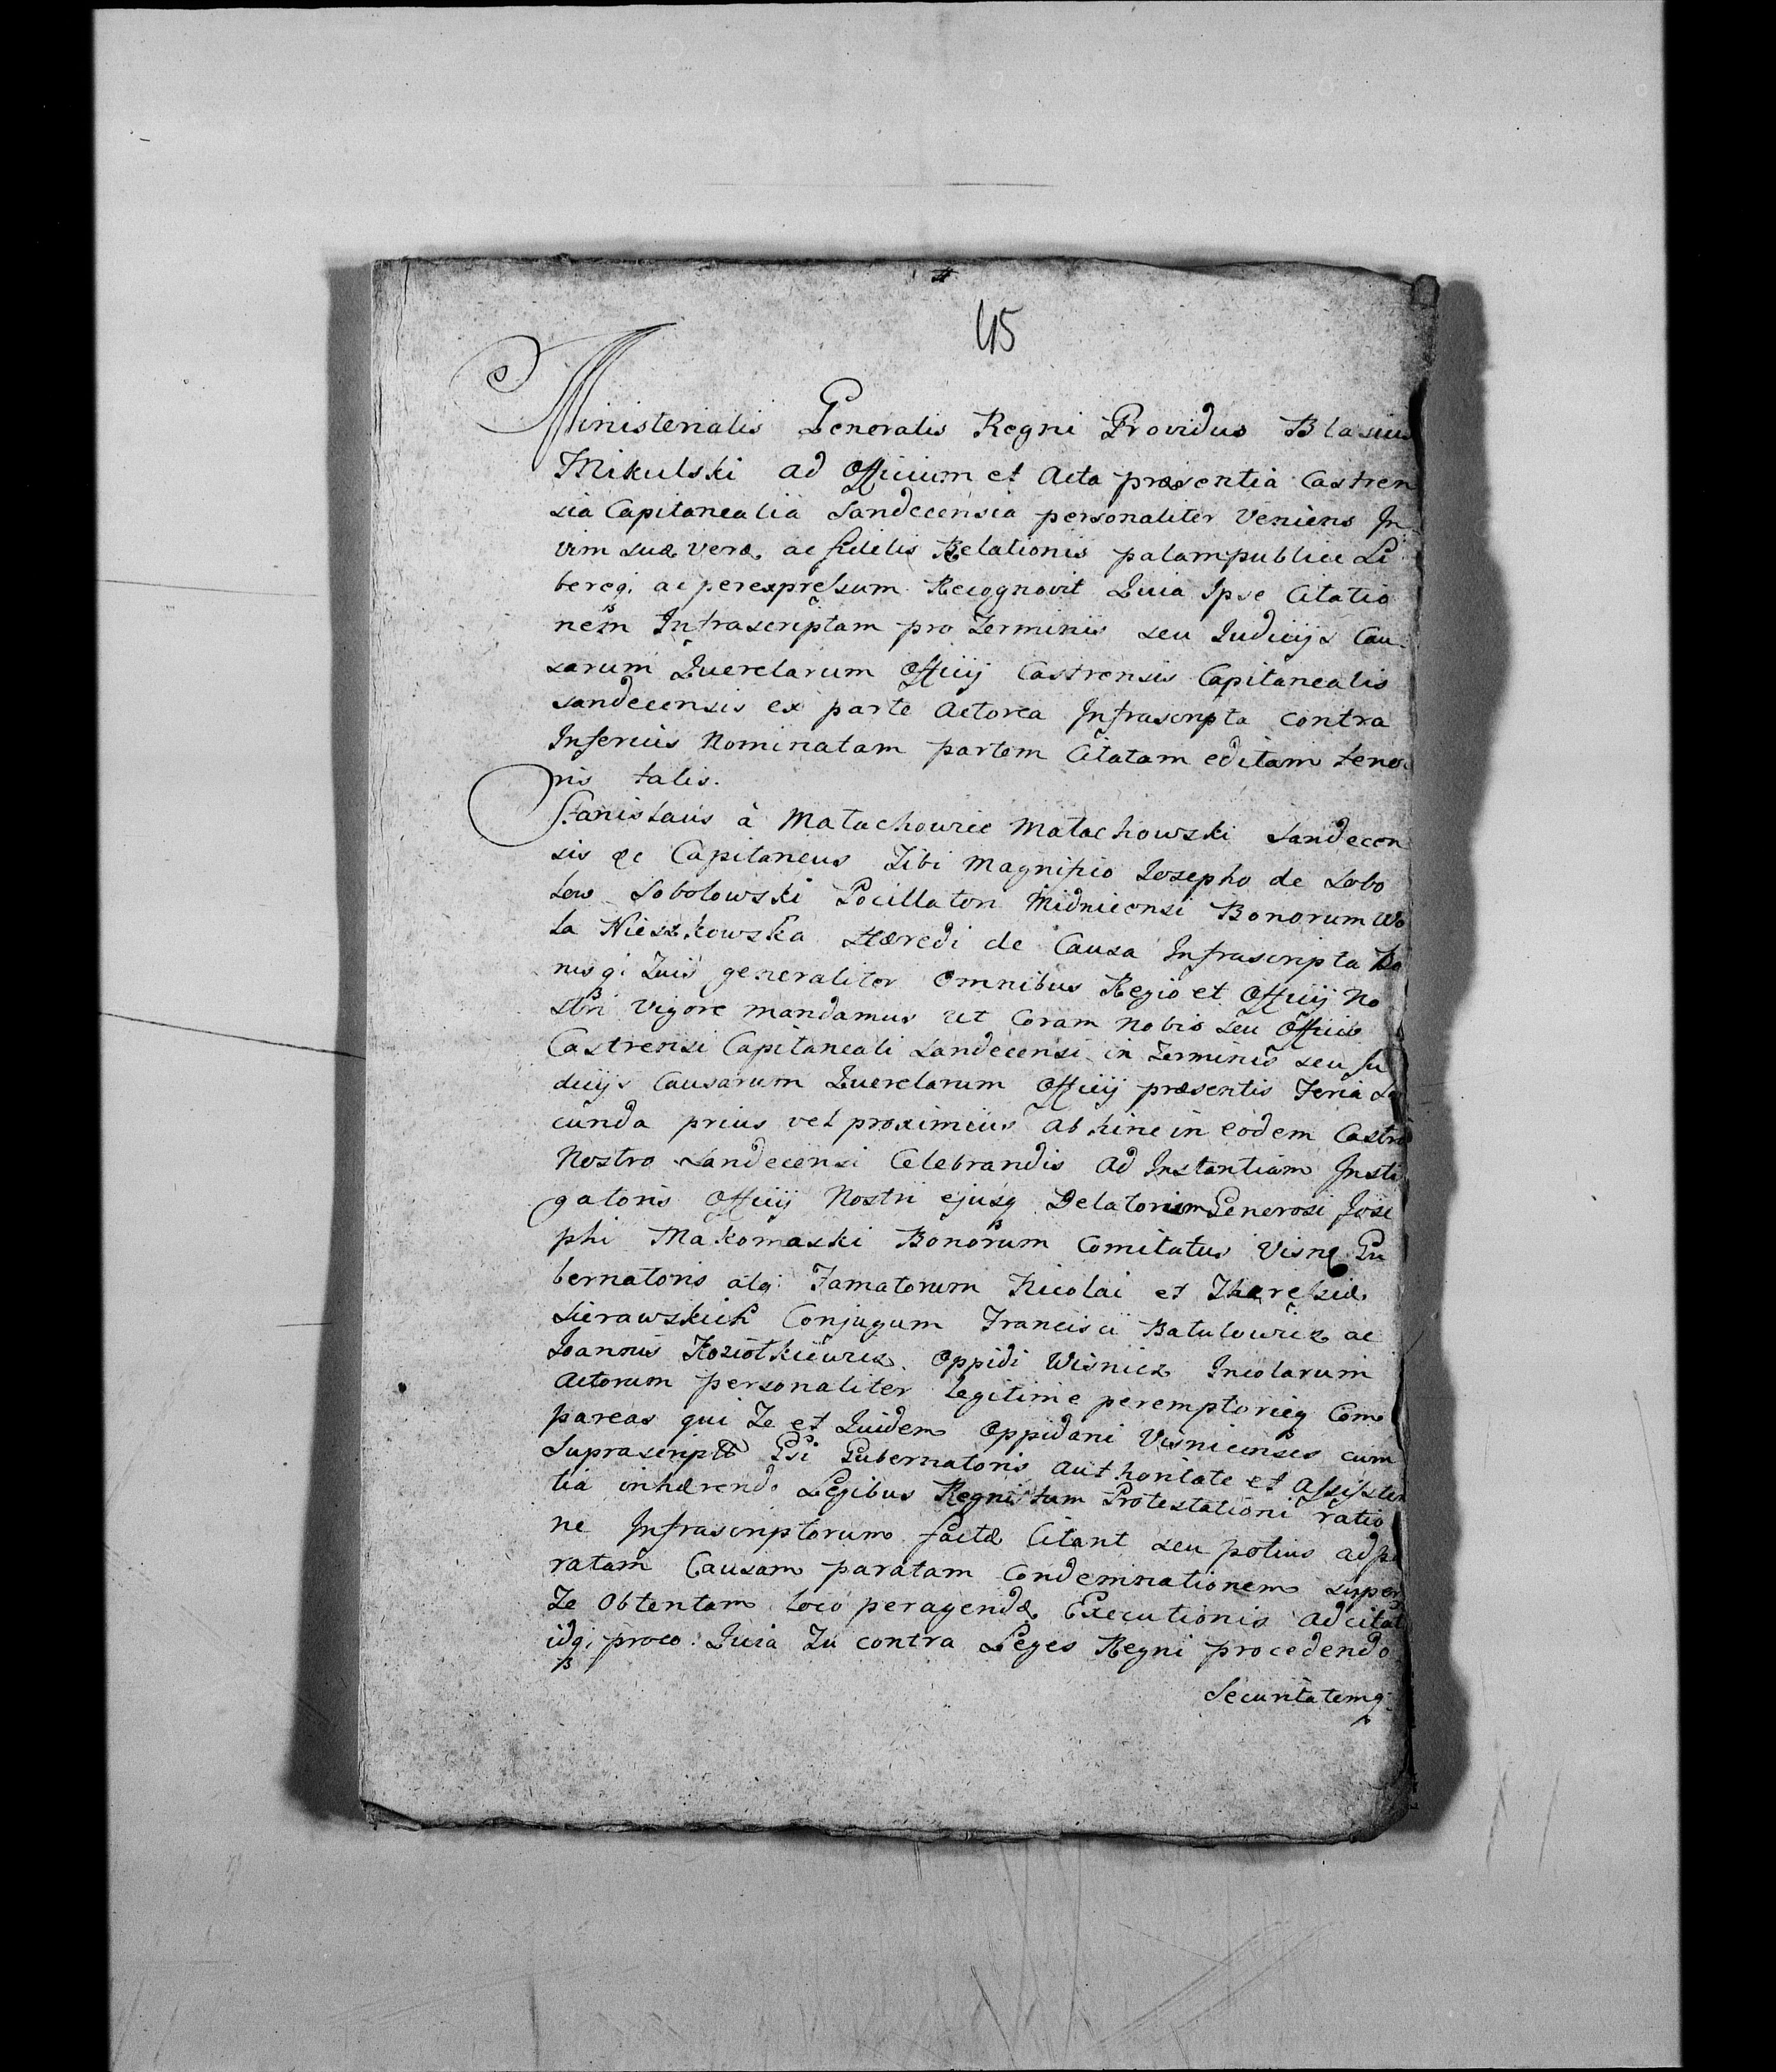 45
Ministerialis Generalis Regni Providus Blasius
Mikulski ad Officium et Acta præsentia Castren
sia Capitanealia Sandecensia personaliter Veniens In
vim suæ veræ ac fidelis Relationis palam publice Li
bereq; ac per expressum Recognovit Quia Ipse Citatio
nem Infrascriptam pro Terminis seu Judicijs Cau
sarum Querelarum Officij Castrensis Capitanealis
Sandecensis ex parte Actorea Infrascripta contra
Inferius Nominatam partem Citatam editam teno
ris talis.
Stanislaus à Małachowice Małachowski Sandecen
sis &c Capitaneus Tibi Magnifico Josepho de Sobo
low Sobolowski Pocillatori Bonorum Wo
la Nieszkowska Hæredi de Causa Infrascripta Bo
nisq; Tuis generaliter omnibus Regio et Officij No
stri Vigore mandamus ut Coram nobis seu Officio
Castrensi Capitaneali Sandecensi in Terminis seu Ju
dicijs Causarum Querelarum Officij præsentis Feria Se
cunda prius vel proximius ab hinc in eodem Castro
Nostro Sandecensi Celebrandis ad Instantiam Insti
gatoris Officij Nostri ejusq; Delatorum Generosi Jose
phi Makomaski Bonorum Comitatus Visn Gu
bernatoris atq; Famatorum Nicolai et Theressiæ
Sierawskich Conjugum Francisci Batulowicz ac
Joannis Koziołkiewicz Oppidi Wisnicz Incolarum
Actorum personaliter legitime peremptorieq; Com
pareas qui Te et Quidem Oppidani Visnicenses cum
Suprascripti Gsi Gubernatoris authoritate et Assisten
tia inhærendo Legibus Regni tum Protestationi ratio
ne Infrascriptorum factæ Citant seu potius ad pa
ratam Causam paratam Condemnationem super
Te Obtentam loco peragendæ Executionis adcitat
idq; proeo: Quia Tu contra Leges Regni procedendo
Securitatemq;